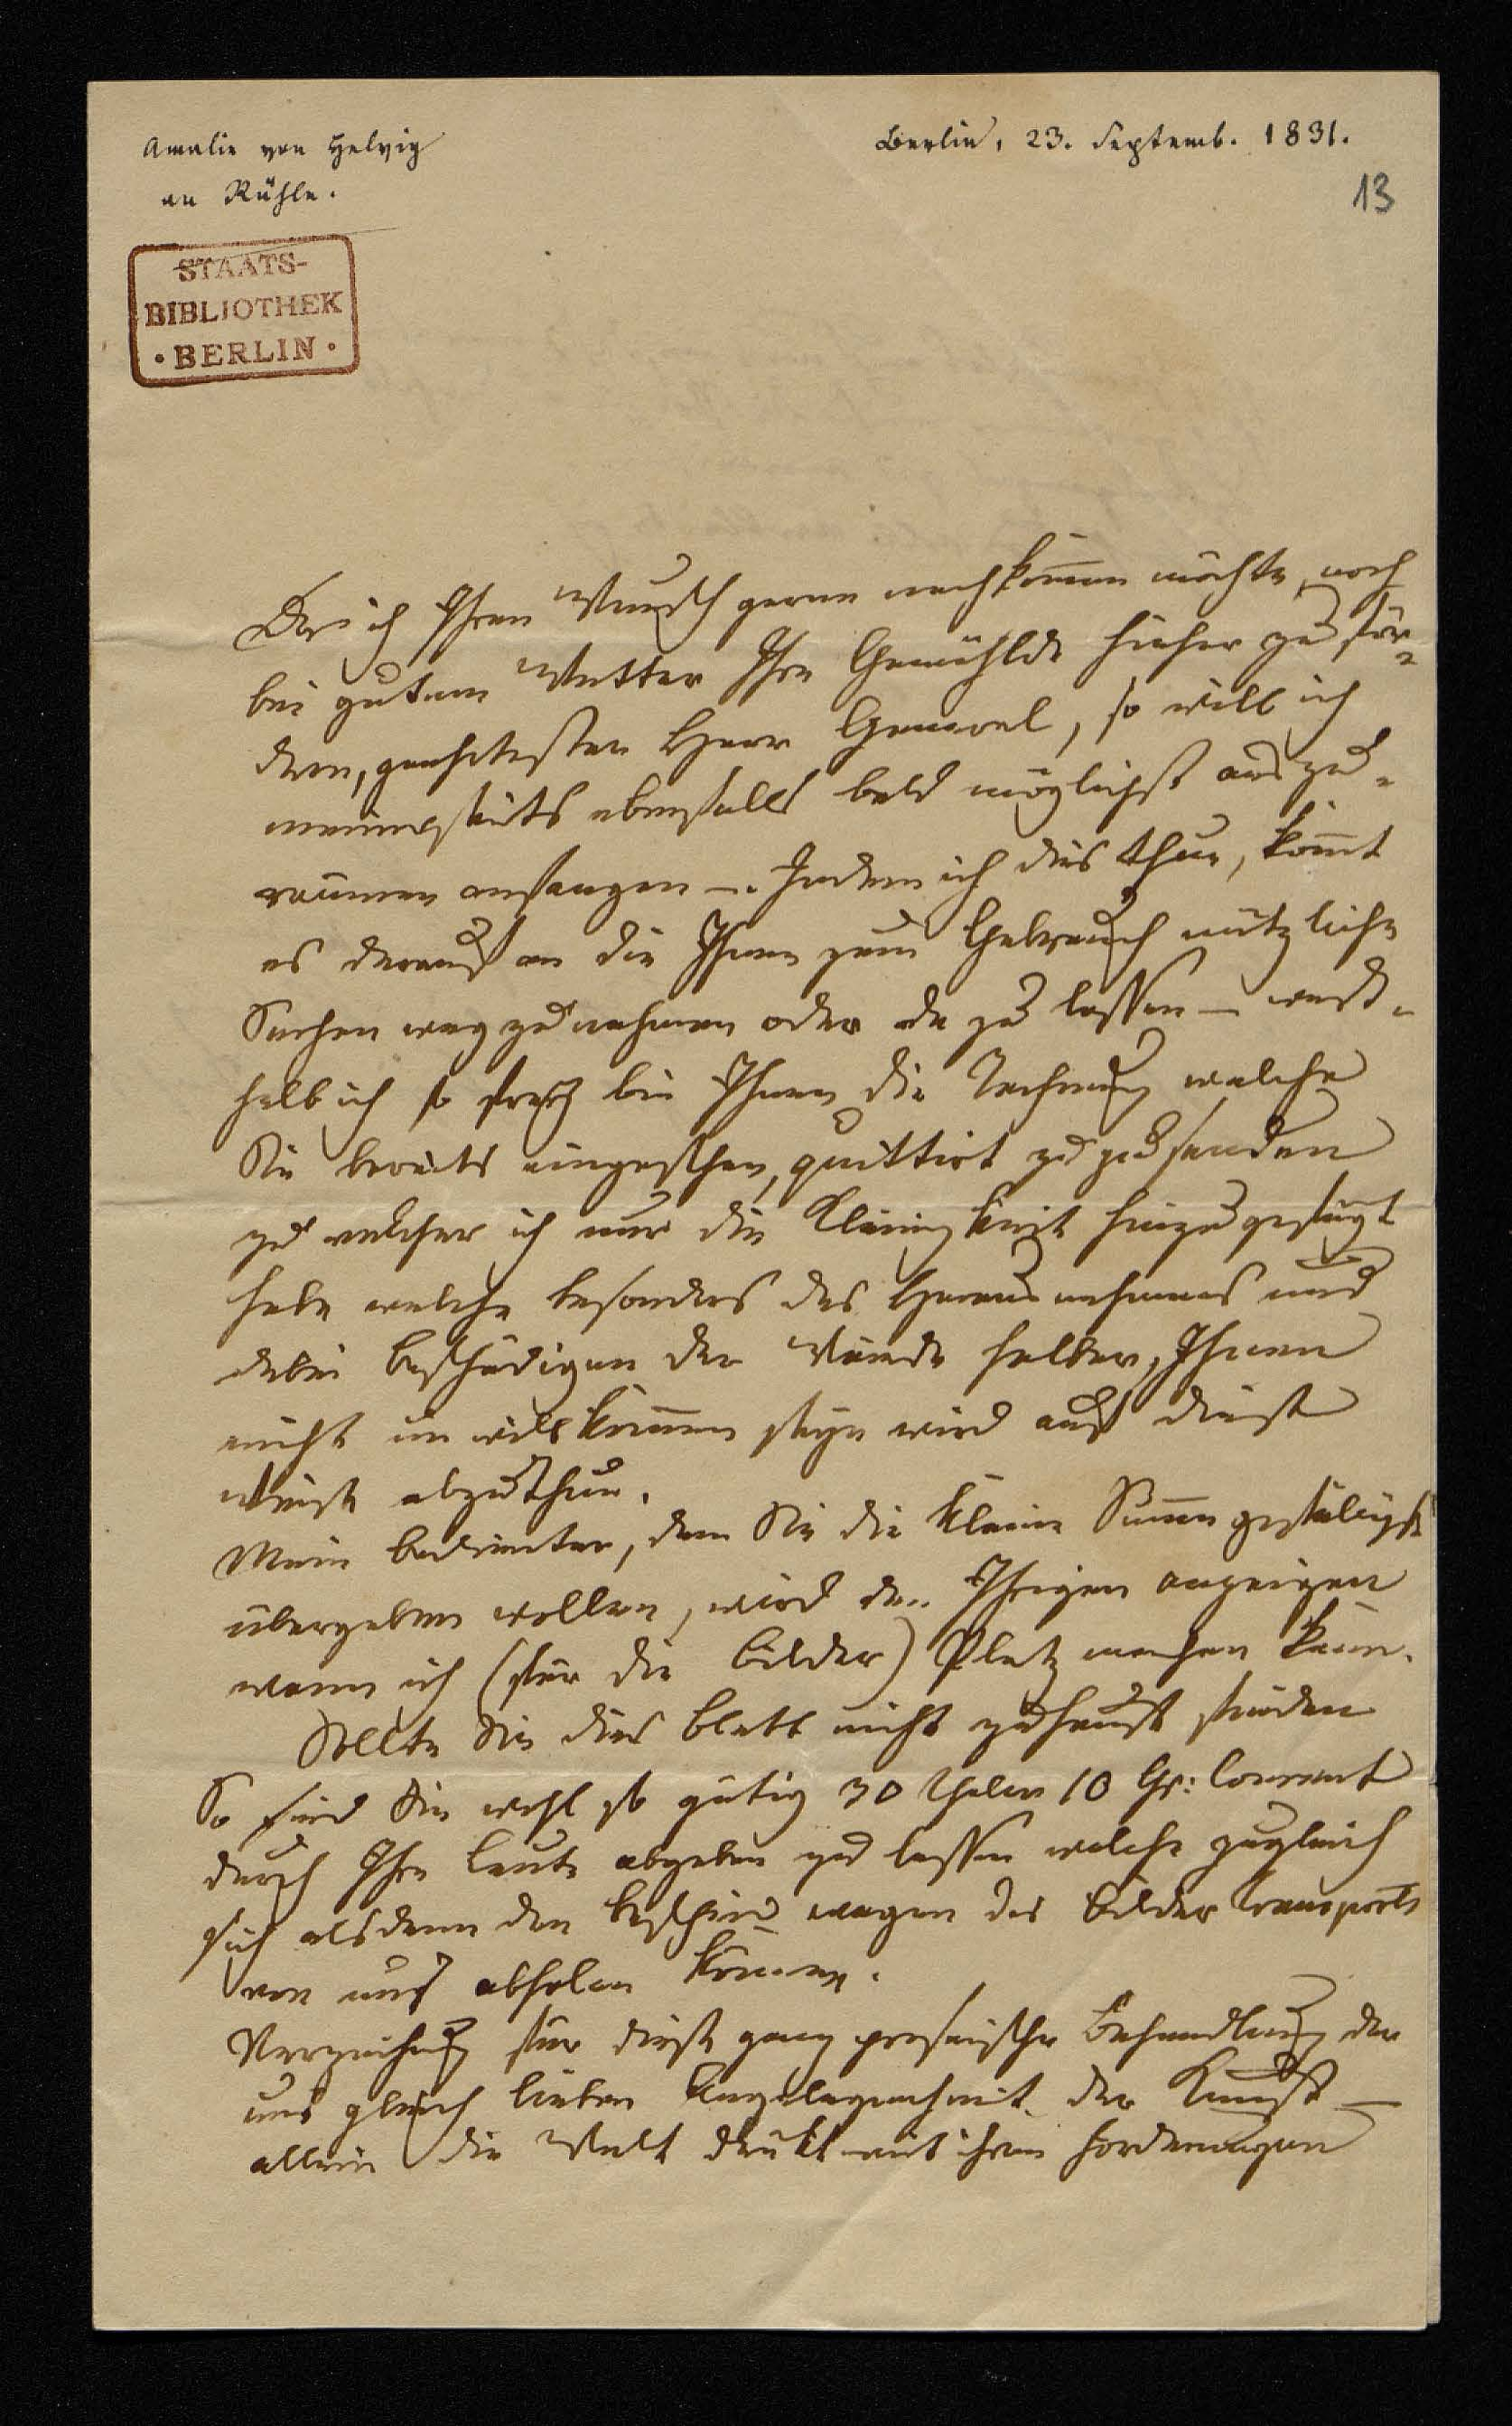 Amalie von Helvig
an Rühle.
Berlin, 23. Septemb. 1831.
13
STAATS-
BIBLIOTHEK
• BERLIN •
Da ich Ihren Wunsch gerne nachkom̄en möchte, noch
bei gutem Wetter Ihre Gemählde hieher zu för-
dern, geehrtester Herr General, so will ich
meinerseits ebenfalls bald möglichst auszu-
räumen anfangen –. Indem ich dies thue, kom̄t
es darauf an die Ihnen zum Gebrauch nützliche
Sachen weg zu nehmen oder da zu lassen – weß-
halb ich so frey bin Ihnen die Rechnung welche
Sie bereits eingesehen, quittirt zu zusenden
zu welcher ich nur die Kleinigkeit hinzugefügt
habe welche besonders des Herausnehmens und
dabei beschädigen der Wände halber, Ihnen
nicht unwillkom̄en seyn wird auf diese
Weise abzuthun.
Mein Bedienter, dem Sie die kleine Sum̄e gefälligst
übergeben wollen, wird den Ihrigen anzeigen
wann ich (für die Bilder) Platz machen kann.
Sollte Sie dies Blatt nicht zuhause finden
So sind Sie wohl so gütig 30 Thaler 10 Gr: Courant
durch Ihre Leute abgeben zu lassen welche zugleich
sich alsdann den Bescheid wegen des Bilder Transports
von mir abholen können.
Verzeihung für diese ganz prosaische Behandlung der
uns gleich lieben Angelegenheit der Kunst –
allein die Welt drükt mit ihren Forderungen